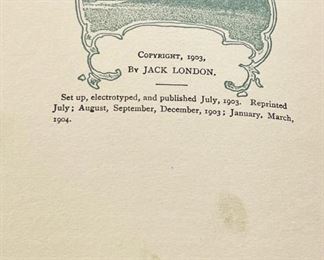 Copyright, 1903,
By JACK LONDON.
Set up, electrotyped, and published July, 1903. Reprinted
July; August, September, December, 1903; January, March,
1904.